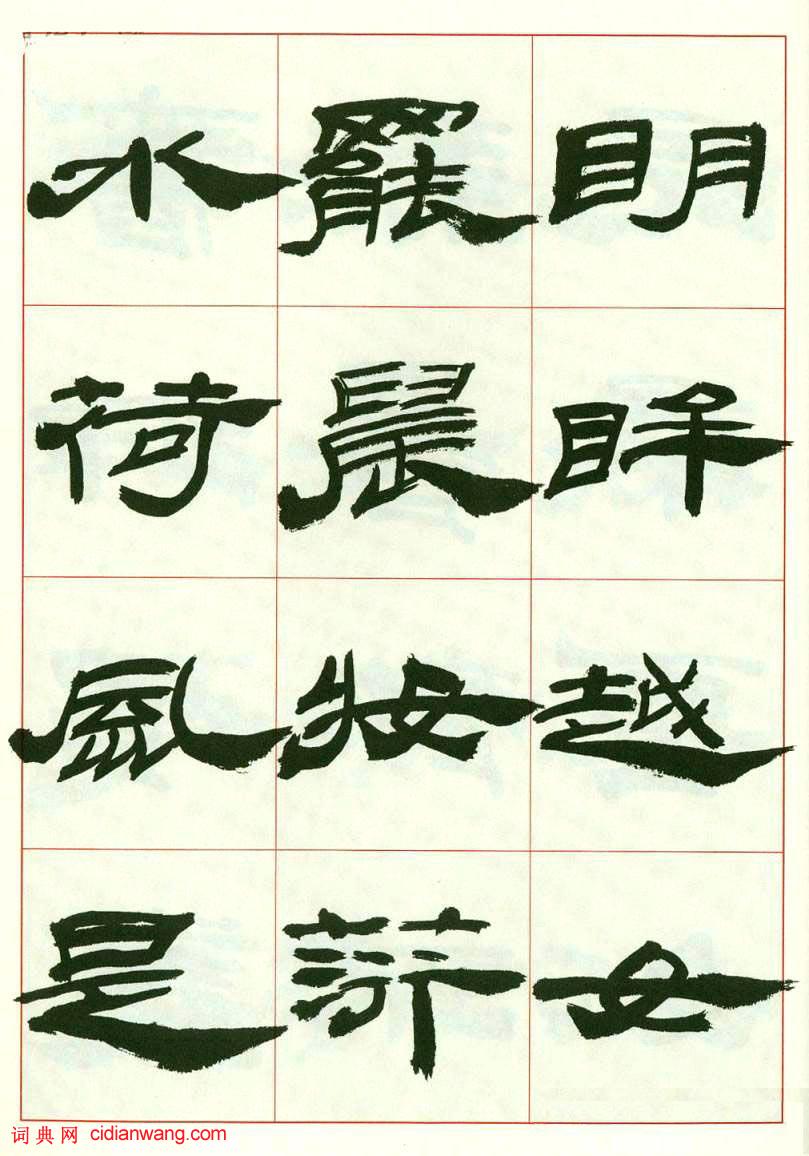 明眸越女
罷晨妝荇
水荷風是
词典网 cidianwang.com